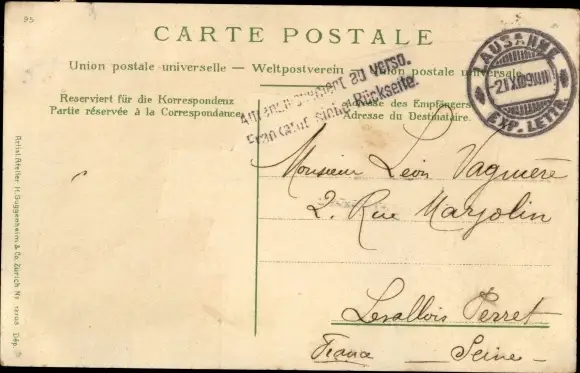 95
CARTE POSTALE
Union postale universelle — Weltpostverein — Union postale universale
Reserviert für die Korrespondenz
Partie réservée à la Correspondance
Adresse des Empfängers
Adresse du Destinataire.
au verso.
Frankatur siehe Rückseite.
LAUSANNE
EXP. LETTR.
Monsieur Léon Vagnière
2. Rue Marjolin
Levallois Perret
France — Seine —
Artist. Atelier H. Guggenheim & Co. Zürich No Dép.